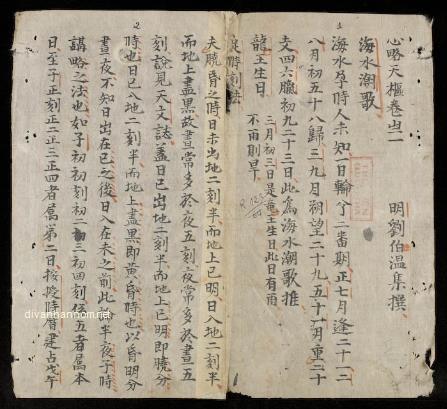 心略天樞卷之一
明劉伯温集撰
海水潮歌
海水孕時人未知一日輪兮二番期正七月逢二十一二
八月初五十八歸三九月朔望二十九五十一朔重二十
支四六臘初九二十三日此為海水潮歌推
龍王生日
三月初三是竜王生日此日有雨
不雨則旱
定時刻法
夫曉昏之時日未出地二刻半而地上已明日入地二刻半
而地上盡黒故晝常多於夜五刻夜常多於晝五
刻說見天文誌蓋日已出地二刻半而地上已明即曉分
時也日已入地二刻半而地上盡黒即黄昏時也以昏明分
晝夜不知日出在已之後日入在未之前此以半夜子時
講略之法也如子初初刻初一初二初三初四刻俟五者屬本
日至子正刻正一正二正三正四者屬第二日按授時曆建占戊午
1
2
divanhannom.net
divanhannom.net